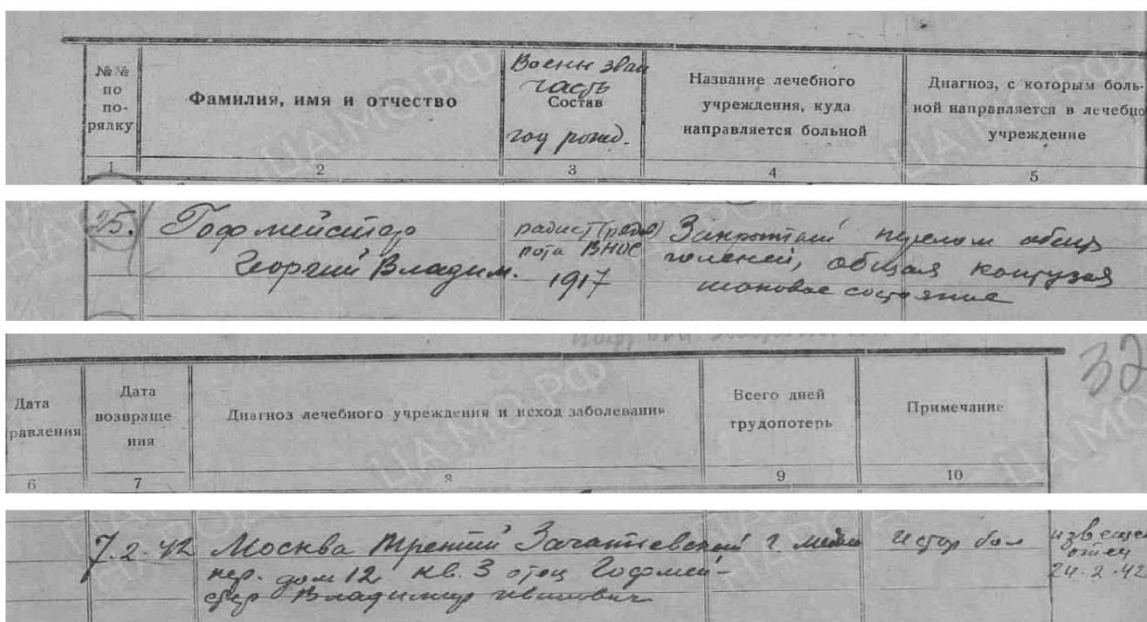 №№ по по-рядку
Фамилия, имя и отчество
Военн зван
часть
Состав
год рожд.
Название лечебного
учреждения, куда
направляется больной
Диагноз, с которым боль-
ной направляется в лечебно
учреждение
1 2 3 4 5
25. Гофмейстер
Георгий Владим.
радист (рядов)
рота ВНОС
1917
Закрытый перелом обеих
голеней, общая контузия
шоковое состояние
Дата
равления
Дата
возвраще-
ния
Диагноз лечебного учреждения и исход заболевания
Всего дней
трудопотерь
Примечание
32
6 7 8 9 10
7.2.42
Москва Третий Зачатиевский
пер. дом 12 кв. 3 отец Гофмей-
стер Владимир Иванович
Истор бол
извещен
отец
24.2.42
ЦАМО РФ